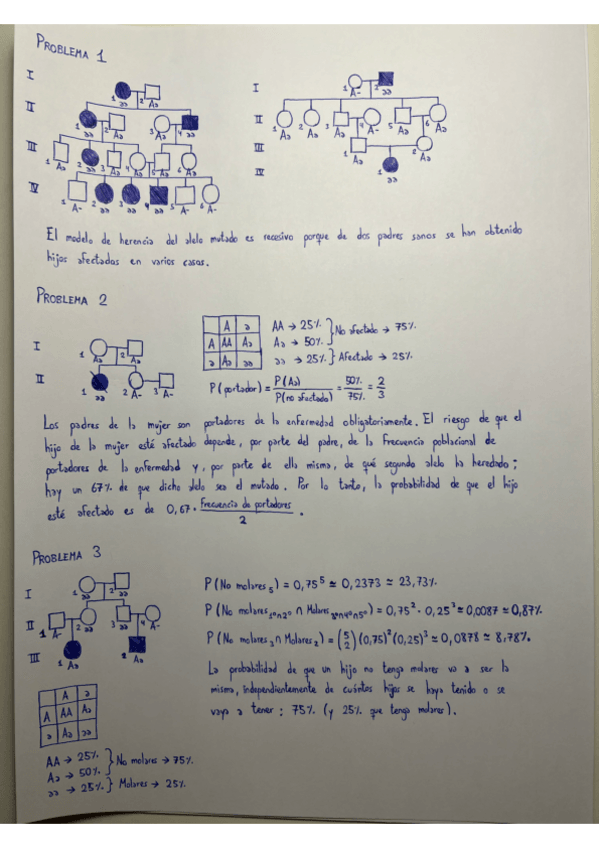 PROBLEMA 1
I
1 aa 2 Aa
II
1 aa 2 Aa 3 Aa 4 aa
III
1 Aa 2 aa 3 Aa 4 Aa 5 Aa 6 Aa
IV
1 A- 2 aa 3 aa 4 aa 5 A- 6 A-
I
1 A- 2 aa
II
1 Aa 2 Aa 3 Aa 4 A- 5 Aa 6 Aa
III
1 Aa 2 Aa
IV
1 aa
El modelo de herencia del alelo mutado es recesivo porque de dos padres sanos se han obtenido
hijos afectadas en varios casos.
PROBLEMA 2
I
1 Aa 2 Aa
II
1 aa 2 A- 3 A-
A a
A AA Aa
a Aa aa
AA → 25%
Aa → 50%
No afectado → 75%
aa → 25% } Afectado → 25%
P (portador) = P(Aa) / P(no afectado) = 50% / 75% = 2/3
Los padres de la mujer son portadores de la enfermedad obligatoriamente. El riesgo de que el
hijo de la mujer esté afectado depende, por parte del padre, de la frecuencia poblacional de
portadores de la enfermedad y, por parte de ella misma, de qué segundo alelo ha heredado;
hay un 67% de que dicho alelo sea el mutado. Por lo tanto, la probabilidad de que el hijo
esté afectado es de 0,67 · Frecuencia de portadores / 2 .
PROBLEMA 3
I
1 aa 2 aa
II
1 A- 2 aa 3 aa 4 A-
III
1 Aa 2 Aa
A a
A AA Aa
a Aa aa
AA → 25%
Aa → 50%
No molares → 75%
aa → 25% } Molares → 25%
P (No molares5) = 0,75^5 ≃ 0,2373 ≃ 23,73%
P (No molares1º∩2º ∩ Molares3º∩4º∩5º) = 0,75^2 · 0,25^3 ≃ 0,0087 ≃ 0,87%
P (No molares3 ∩ Molares2) = (5 2) (0,75)^2 (0,25)^3 ≃ 0,0878 ≃ 8,78%.
La probabilidad de que un hijo no tenga molares va a ser la
misma, independientemente de cuántos hijos se haya tenido o se
vaya a tener: 75% (y 25% que tenga molares).